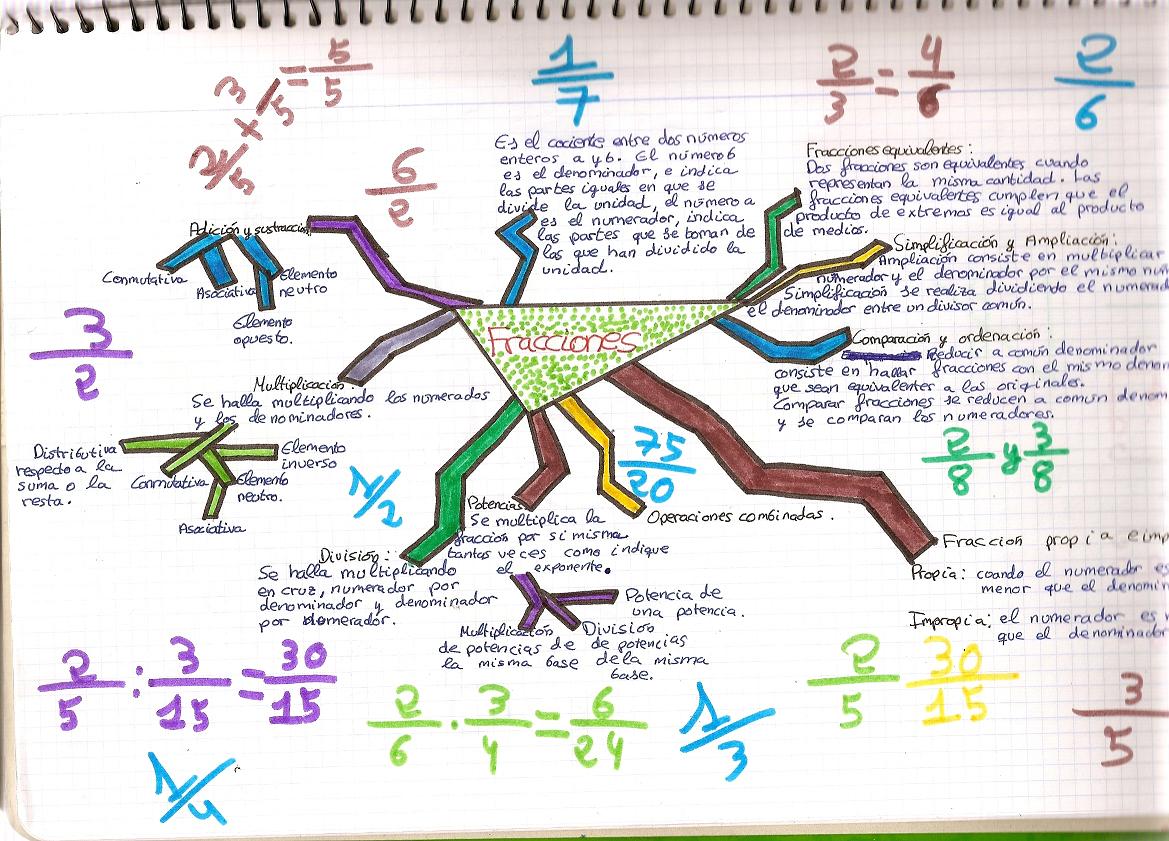 2/5 + 3/5 = 5/5
1/7
2/3 = 4/6
2/6
6/2
Es el cociente entre dos números
enteros a y b. El número b
es el denominador, e indica
las partes iguales en que se
divide la unidad, el número a
es el numerador, indica
las partes que se toman de
los que han dividido la
unidad.
Fracciones equivalentes:
Dos fracciones son equivalentes cuando
representan la misma cantidad. Las
fracciones equivalentes cumplen que el
producto de extremos es igual al producto
de medios.
Simplificación y Ampliación:
Ampliación consiste en multiplicar
numerador y el denominador por el mismo
Simplificación se realiza dividiendo el
el denominador entre un divisor común.
Comparación y ordenación:
Reducir a común denominador
consiste en hallar fracciones con el mismo
que sean equivalentes a las originales.
Comparar fracciones se reducen a común
y se comparan los numeradores.
2/8 y 3/8
Adición y sustracción
Conmutativa
Asociativa
Elemento
neutro
Elemento
opuesto.
Fracciones
3/2
Multiplicación:
Se halla multiplicando los numerados
y los denominadores.
Distributiva
respecto a la
suma o la
resta.
Conmutativa
Elemento
inverso
Elemento
neutro.
Asociativa
1/2
75/20
Potencias
Se multiplica la
fracción por si misma
tantas veces como indique
el exponente.
Operaciones combinadas.
Potencia de
una potencia.
Multiplicación
de potencias de
la misma base
División
de potencias
de la misma
base.
División:
Se halla multiplicando
en cruz, numerador por
denominador y denominador
por numerador.
Fracción propia e
Propia: coando el numerador es
menor que el
Impropia: el numerador es
que el
2/5 : 3/15 = 30/15
2/6 · 3/4 = 6/24
1/3
2/5
30/15
3/5
1/4